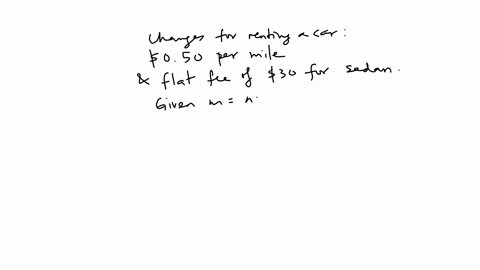 Changes for renting a car :
$0.50 per mile
& flat fee of $30 for sedan.
Given m = n